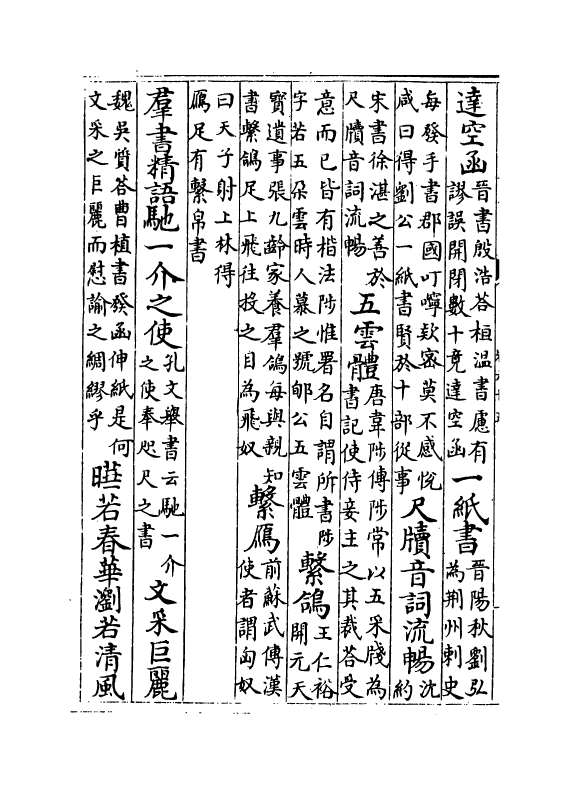 達空函晉書殷浩荅桓温書慮有謬誤開閉數十竟達空函一紙書晉陽秋劉弘為荆州刺史
每發手書郡國叮嚀欵密莫不感悅咸曰得劉公一紙書賢於十部從事尺牘音詞流暢沈約
宋書徐湛之善於尺牘音詞流暢五雲體唐韋陟傳陟常以五采牋為書記使侍妾主之其裁荅受
意而已皆有楷法陟惟署名自謂所書陟字若五朵雲時人慕之號郇公五雲體繫鴿王仁裕開元天
寳遺事張九齡家養羣鴿每與親知書繫鴿足上飛往投之目為飛奴繫鴈前蘇武傳漢使者謂匈奴
曰天子射上林得鴈足有繫帛書
羣書精語馳一介之使孔文舉書云馳一介之使奉咫尺之書文采巨麗
魏吳質荅曹植書發函伸紙是何文采之巨麗而慰諭之綢繆乎曄若春華瀏若清風